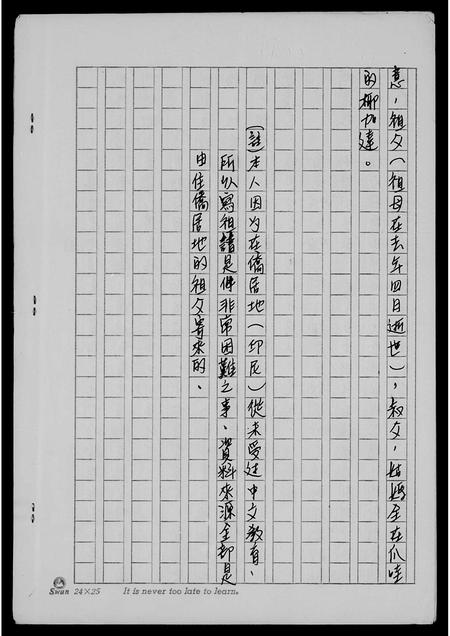 意，祖父(祖母在去年四日逝世)，叔父，姑媽全在爪哇
的椰加達。
(註)本人因为在僑居地(印尼)從未受过中文教育、
所以寫祖譜是件非常困難之事、資料來源全部是
由住僑居地的祖父寄來的、
Swan 24×25 It is never too late to learn.